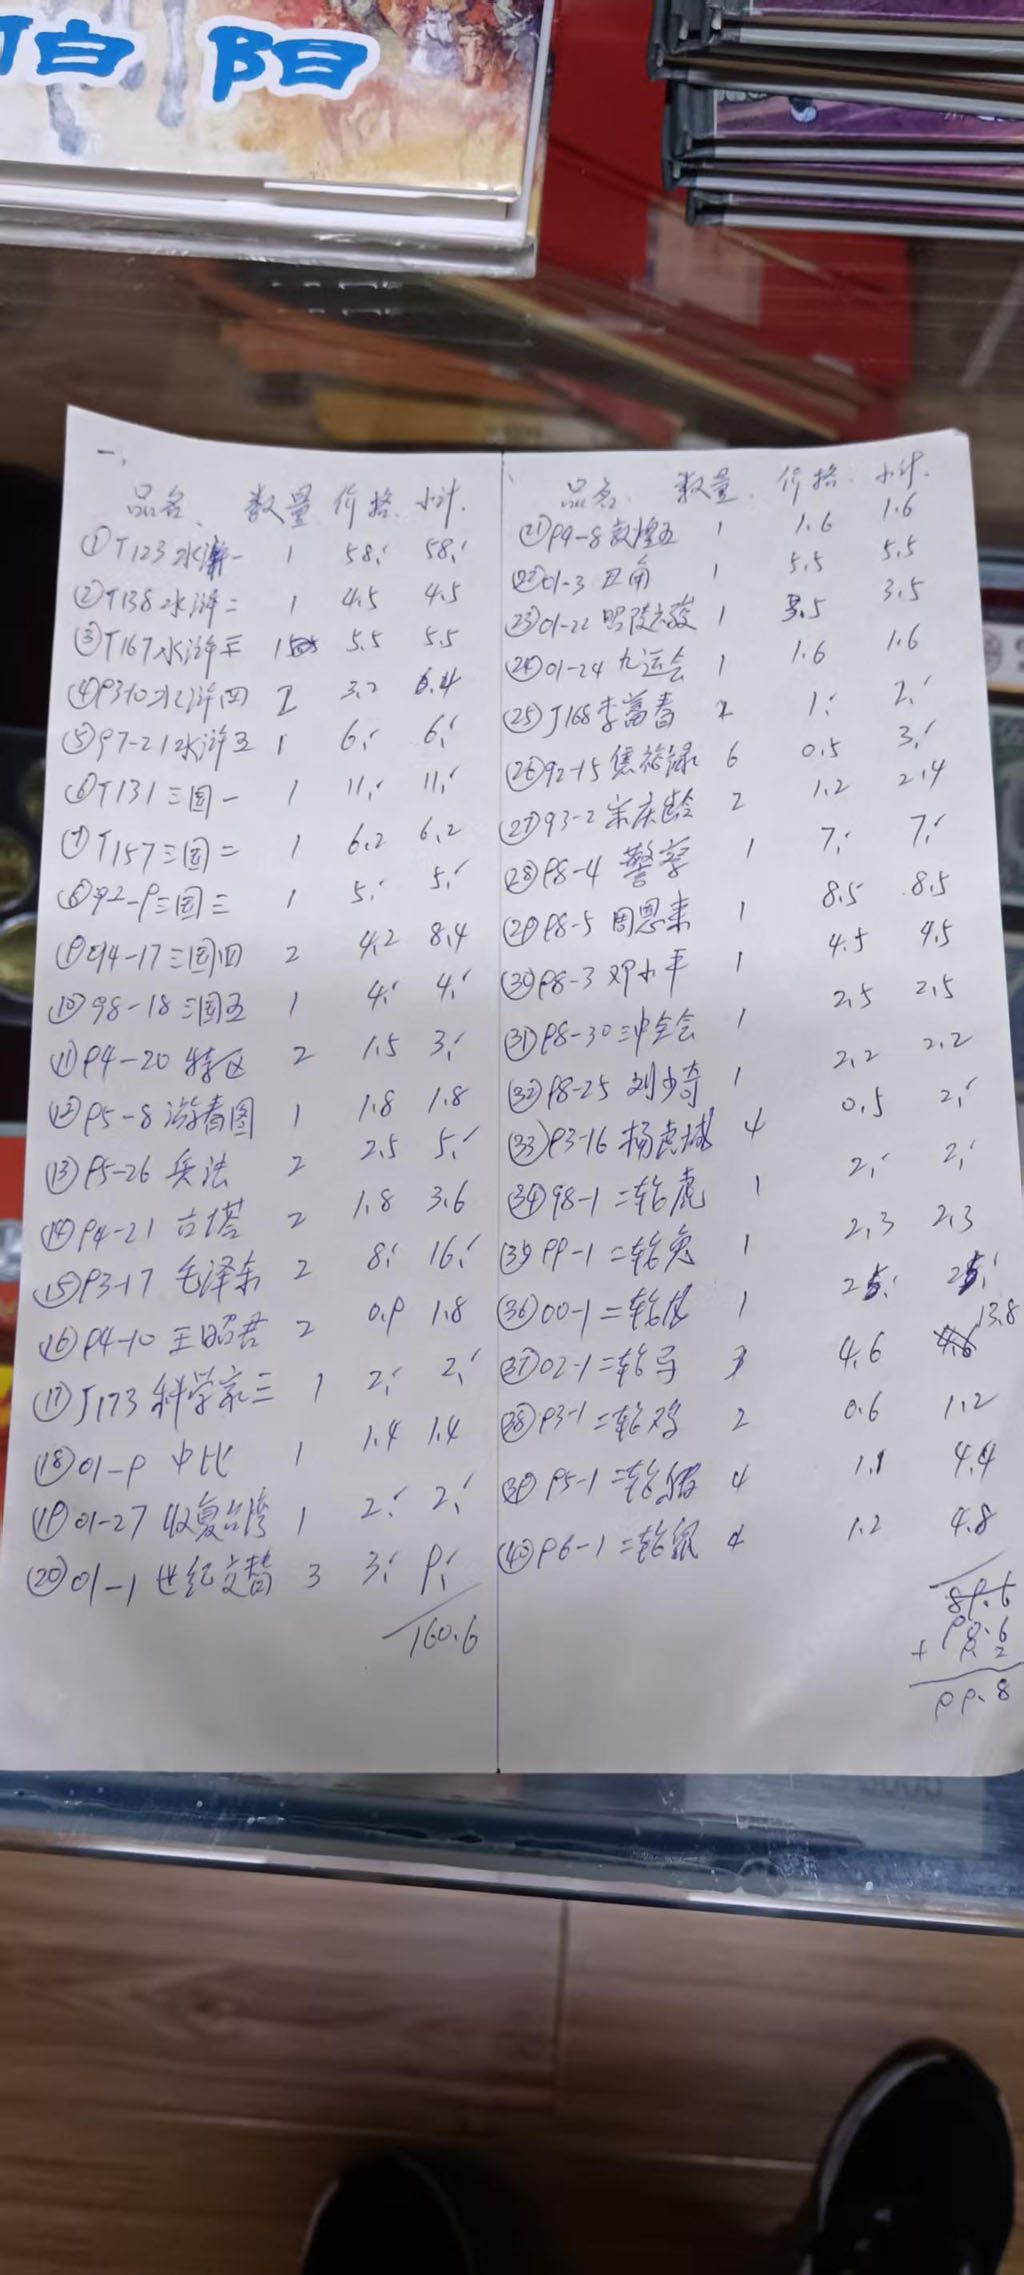 伯阳
一、
品名、 数量 价格、 小计、
①T123水浒一 1 58、 58、
②T138水浒二 1 4.5 4.5
③T167水浒三 1 5.5 5.5
④93-10水浒四 2 3.2 6.4
⑤97-21水浒五 1 6、 6、
⑥T131三国一 1 11、 11、
⑦T157三国二 1 6.2 6.2
⑧92-9三国三 1 5、 5、
⑨94-17三国四 2 4.2 8.4
⑩98-18三国五 1 4、 4、
⑪94-20 特区 2 1.5 3、
⑫95-8游春图 1 1.8 1.8
⑬95-26 兵法 2 2.5 5、
⑭94-21 古塔 2 1.8 3.6
⑮93-17 毛泽东 2 8、 16、
⑯94-10 王昭君 2 0.9 1.8
⑰J173 科学家三 1 2、 2、
⑱01-9 中比 1 1.4 1.4
⑲01-27 收复台湾 1 2、 2、
⑳01-1 世纪交替 3 3、 9、
160.6
品名、 数量、 价格、 小计、
㉑94-8敦煌五 1 1.6 1.6
㉒01-3 丑角 1 5.5 5.5
㉓01-22 昭陵六骏 1 3.5 3.5
㉔01-24 九运会 1 1.6 1.6
㉕J168李富春 2 1、 2、
㉖92-15 焦裕禄 6 0.5 3、
㉗93-2 宋庆龄 2 1.2 2.4
㉘98-4 警察 1 7、 7、
㉙98-5 周恩来 1 8.5 8.5
㉚98-3 邓小平 1 4.5 4.5
㉛98-30三中全会 1 2.5 2.5
㉜98-25 刘少奇 1 2.2 2.2
㉝93-16 杨虎城 4 0.5 2、
㉞98-1 二轮虎 1 2、 2、
㉟99-1 二轮兔 1 2.3 2.3
㊱00-1 二轮龙 1
㊲02-1 二轮马 3 4.6 13.8
㊳93-1 二轮鸡 2 0.6 1.2
㊴95-1 二轮猪 4 1.1 4.4
㊵96-1 二轮鼠 4 1.2 4.8
89.6
90.6
+ 9.2
99.8